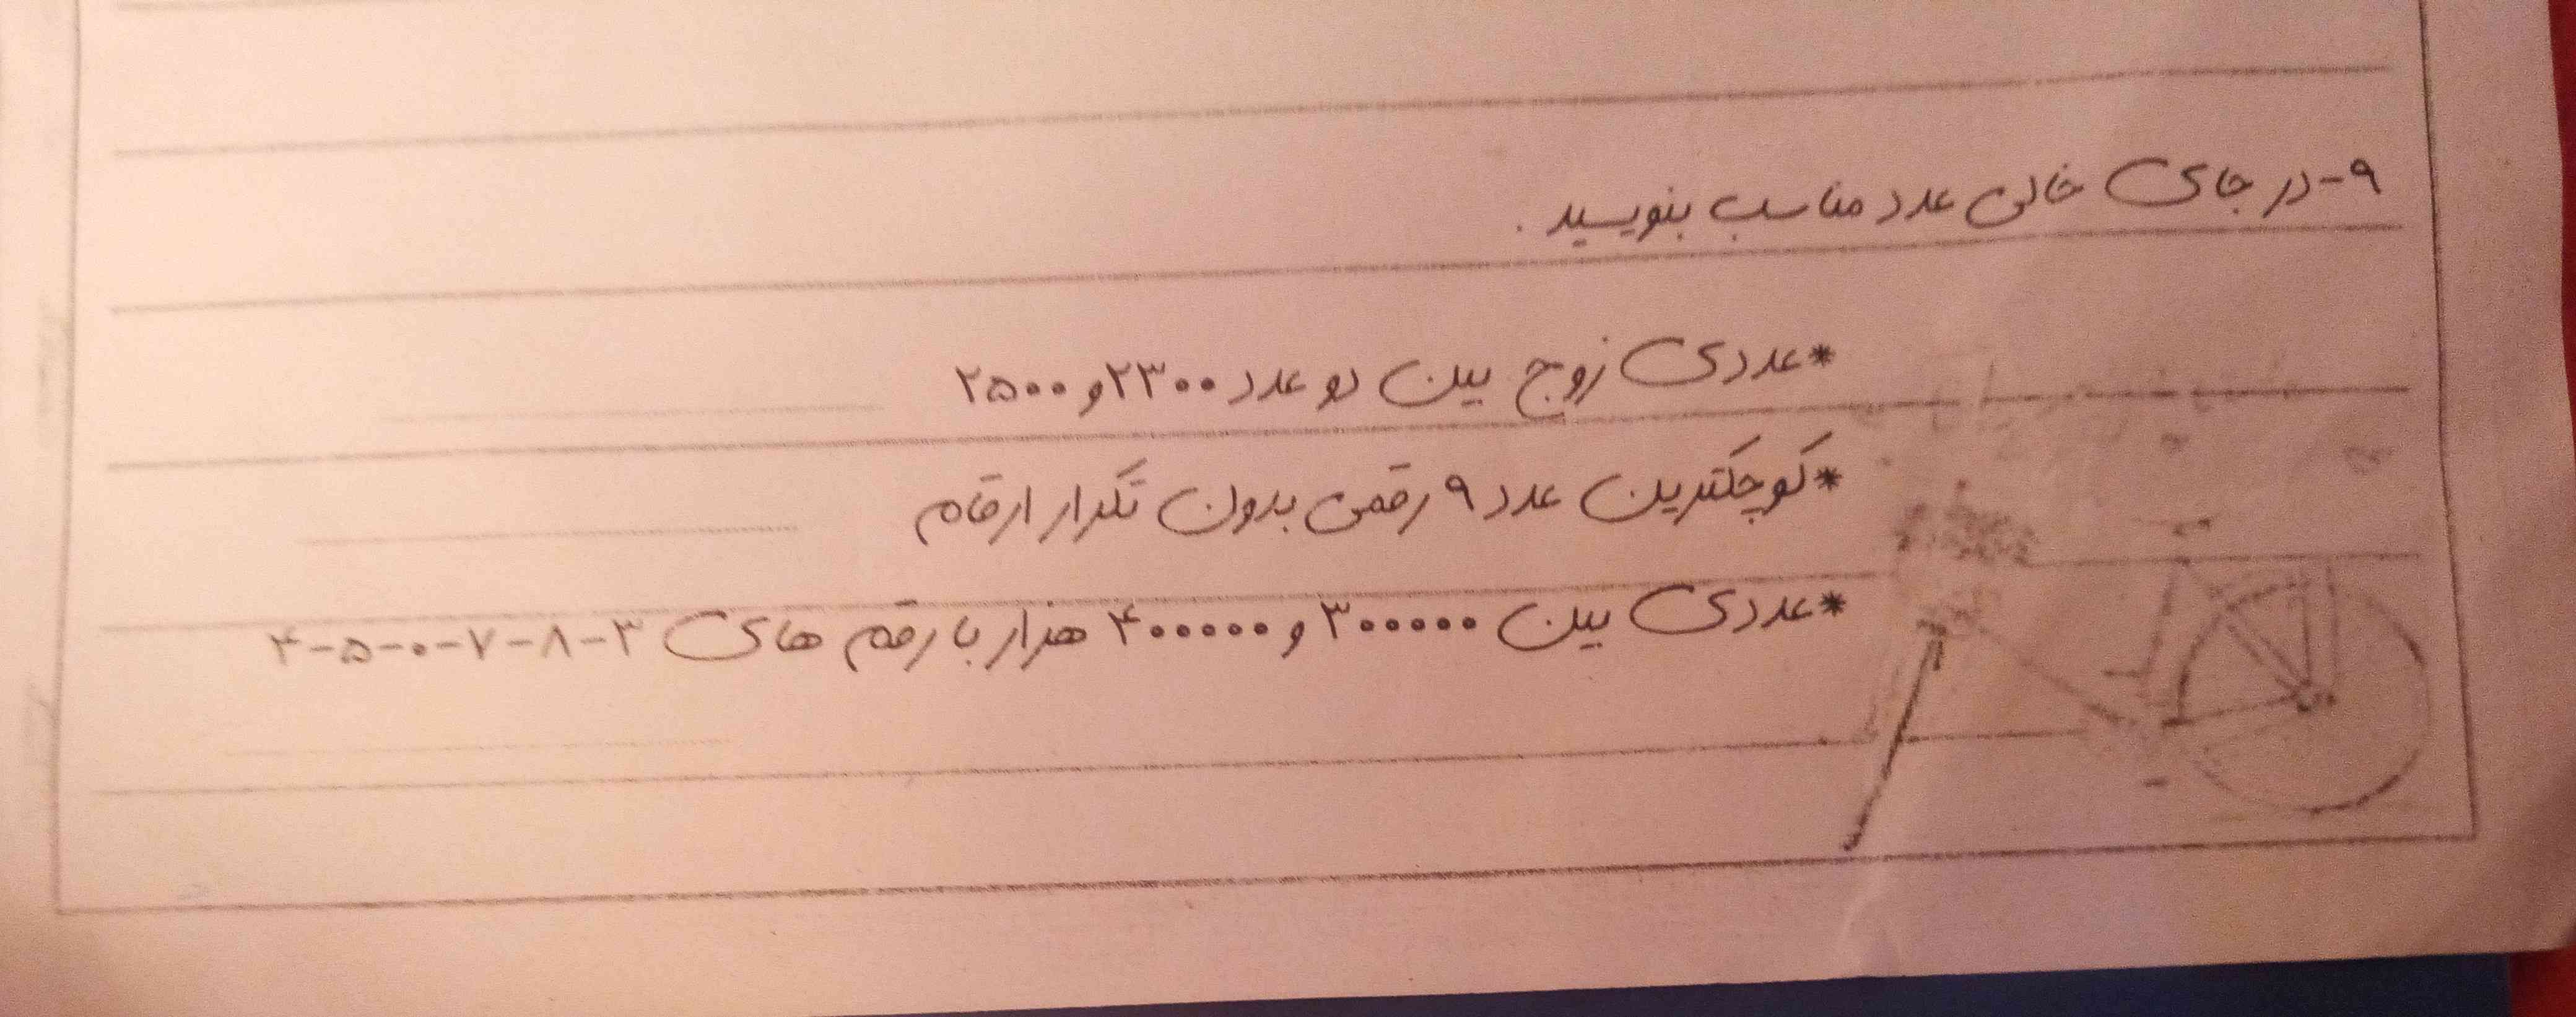 ۹- در جای خالی عدد مناسب بنویسید .
*عددی زوج بین دو عدد ۲۳۰۰ و ۲۵۰۰
*کوچکترین عدد ۹ رقمی بدون تکرار ارقام
*عددی بین ۳۰۰۰۰۰ و ۴۰۰۰۰۰ هزار با رقم های ۳-۸-۷-۰-۵-۴